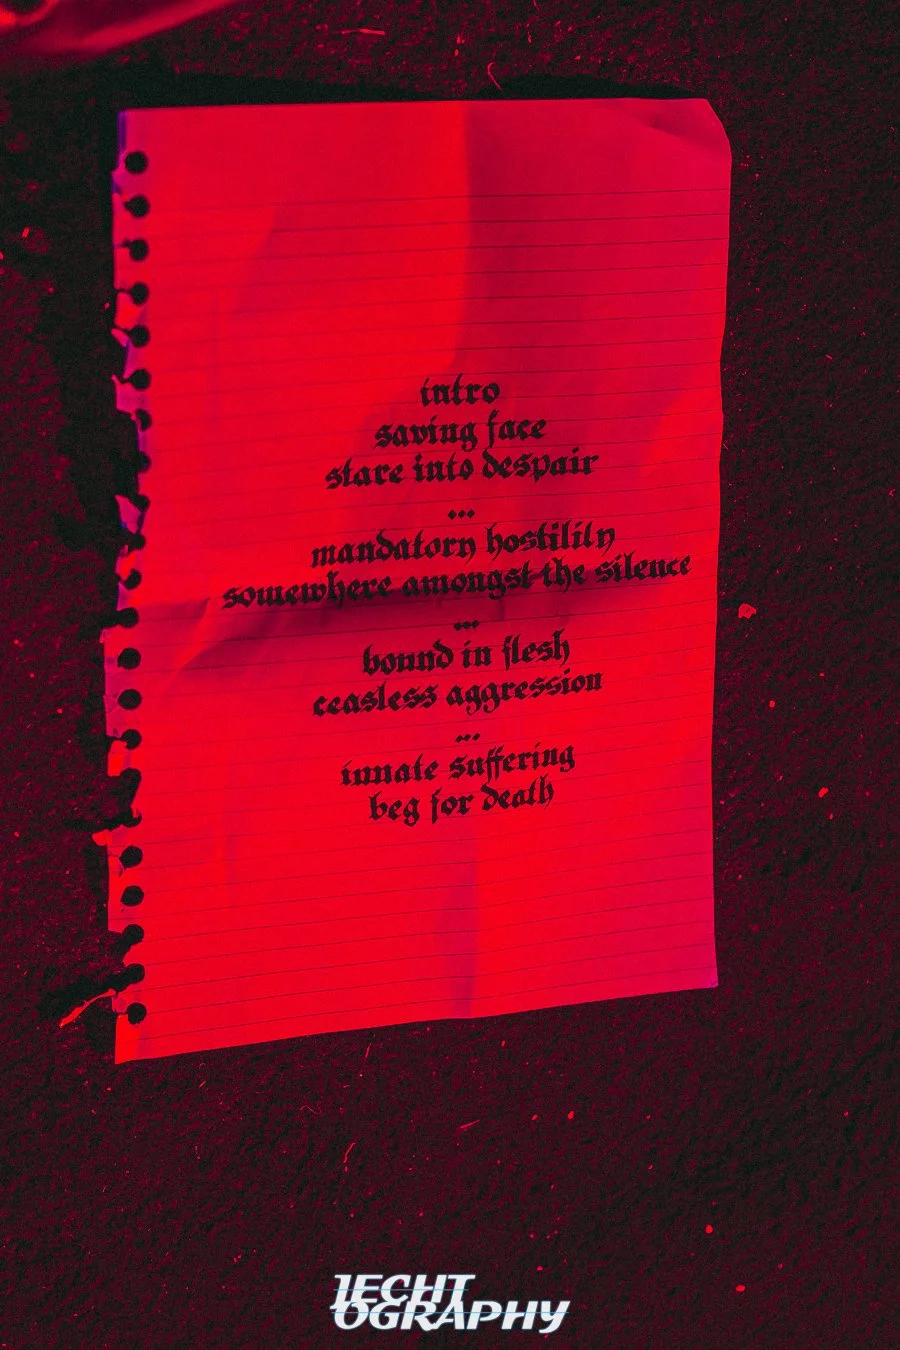 intro
saving face
stare into despair
...
mandatory hostility
somewhere amongst the silence
...
bound in flesh
ceasless aggression
...
innate suffering
beg for death
IECHT
OGRAPHY